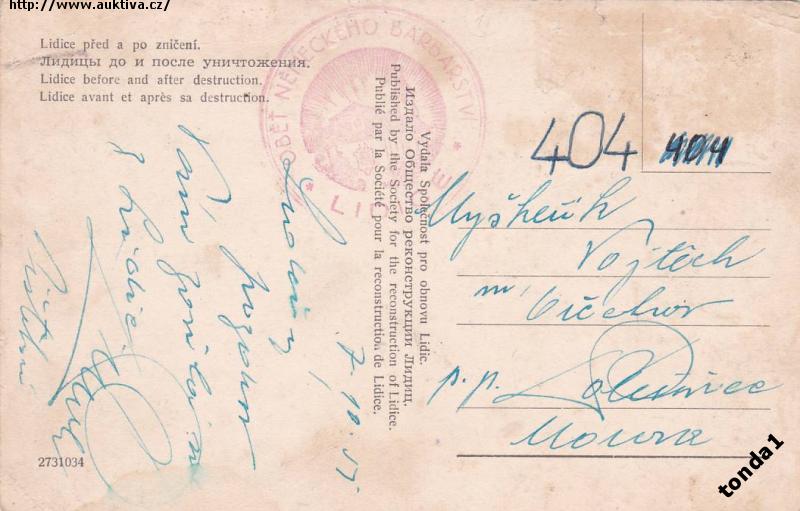 http://www.auktiva.cz/
Lidice před a po zničení.
Лидицы до и после уничтожения.
Lidice before and after destruction.
Lidice avant et après sa destruction.
OBĚŤ NĚMECKÉHO BARBARSTVÍ
LIDICE
Vydala Společnost pro obnovu Lidic.
Издало Общество реконструкции Лидиц.
Published by the Society for the reconstruction of Lidice.
Publié par la Société pour la reconstruction de Lidice.
404
404
Vojtěch
p.p.
Morava
Srdečný
pozdrav
Vám posílám
z Lidic
2731034
tonda1